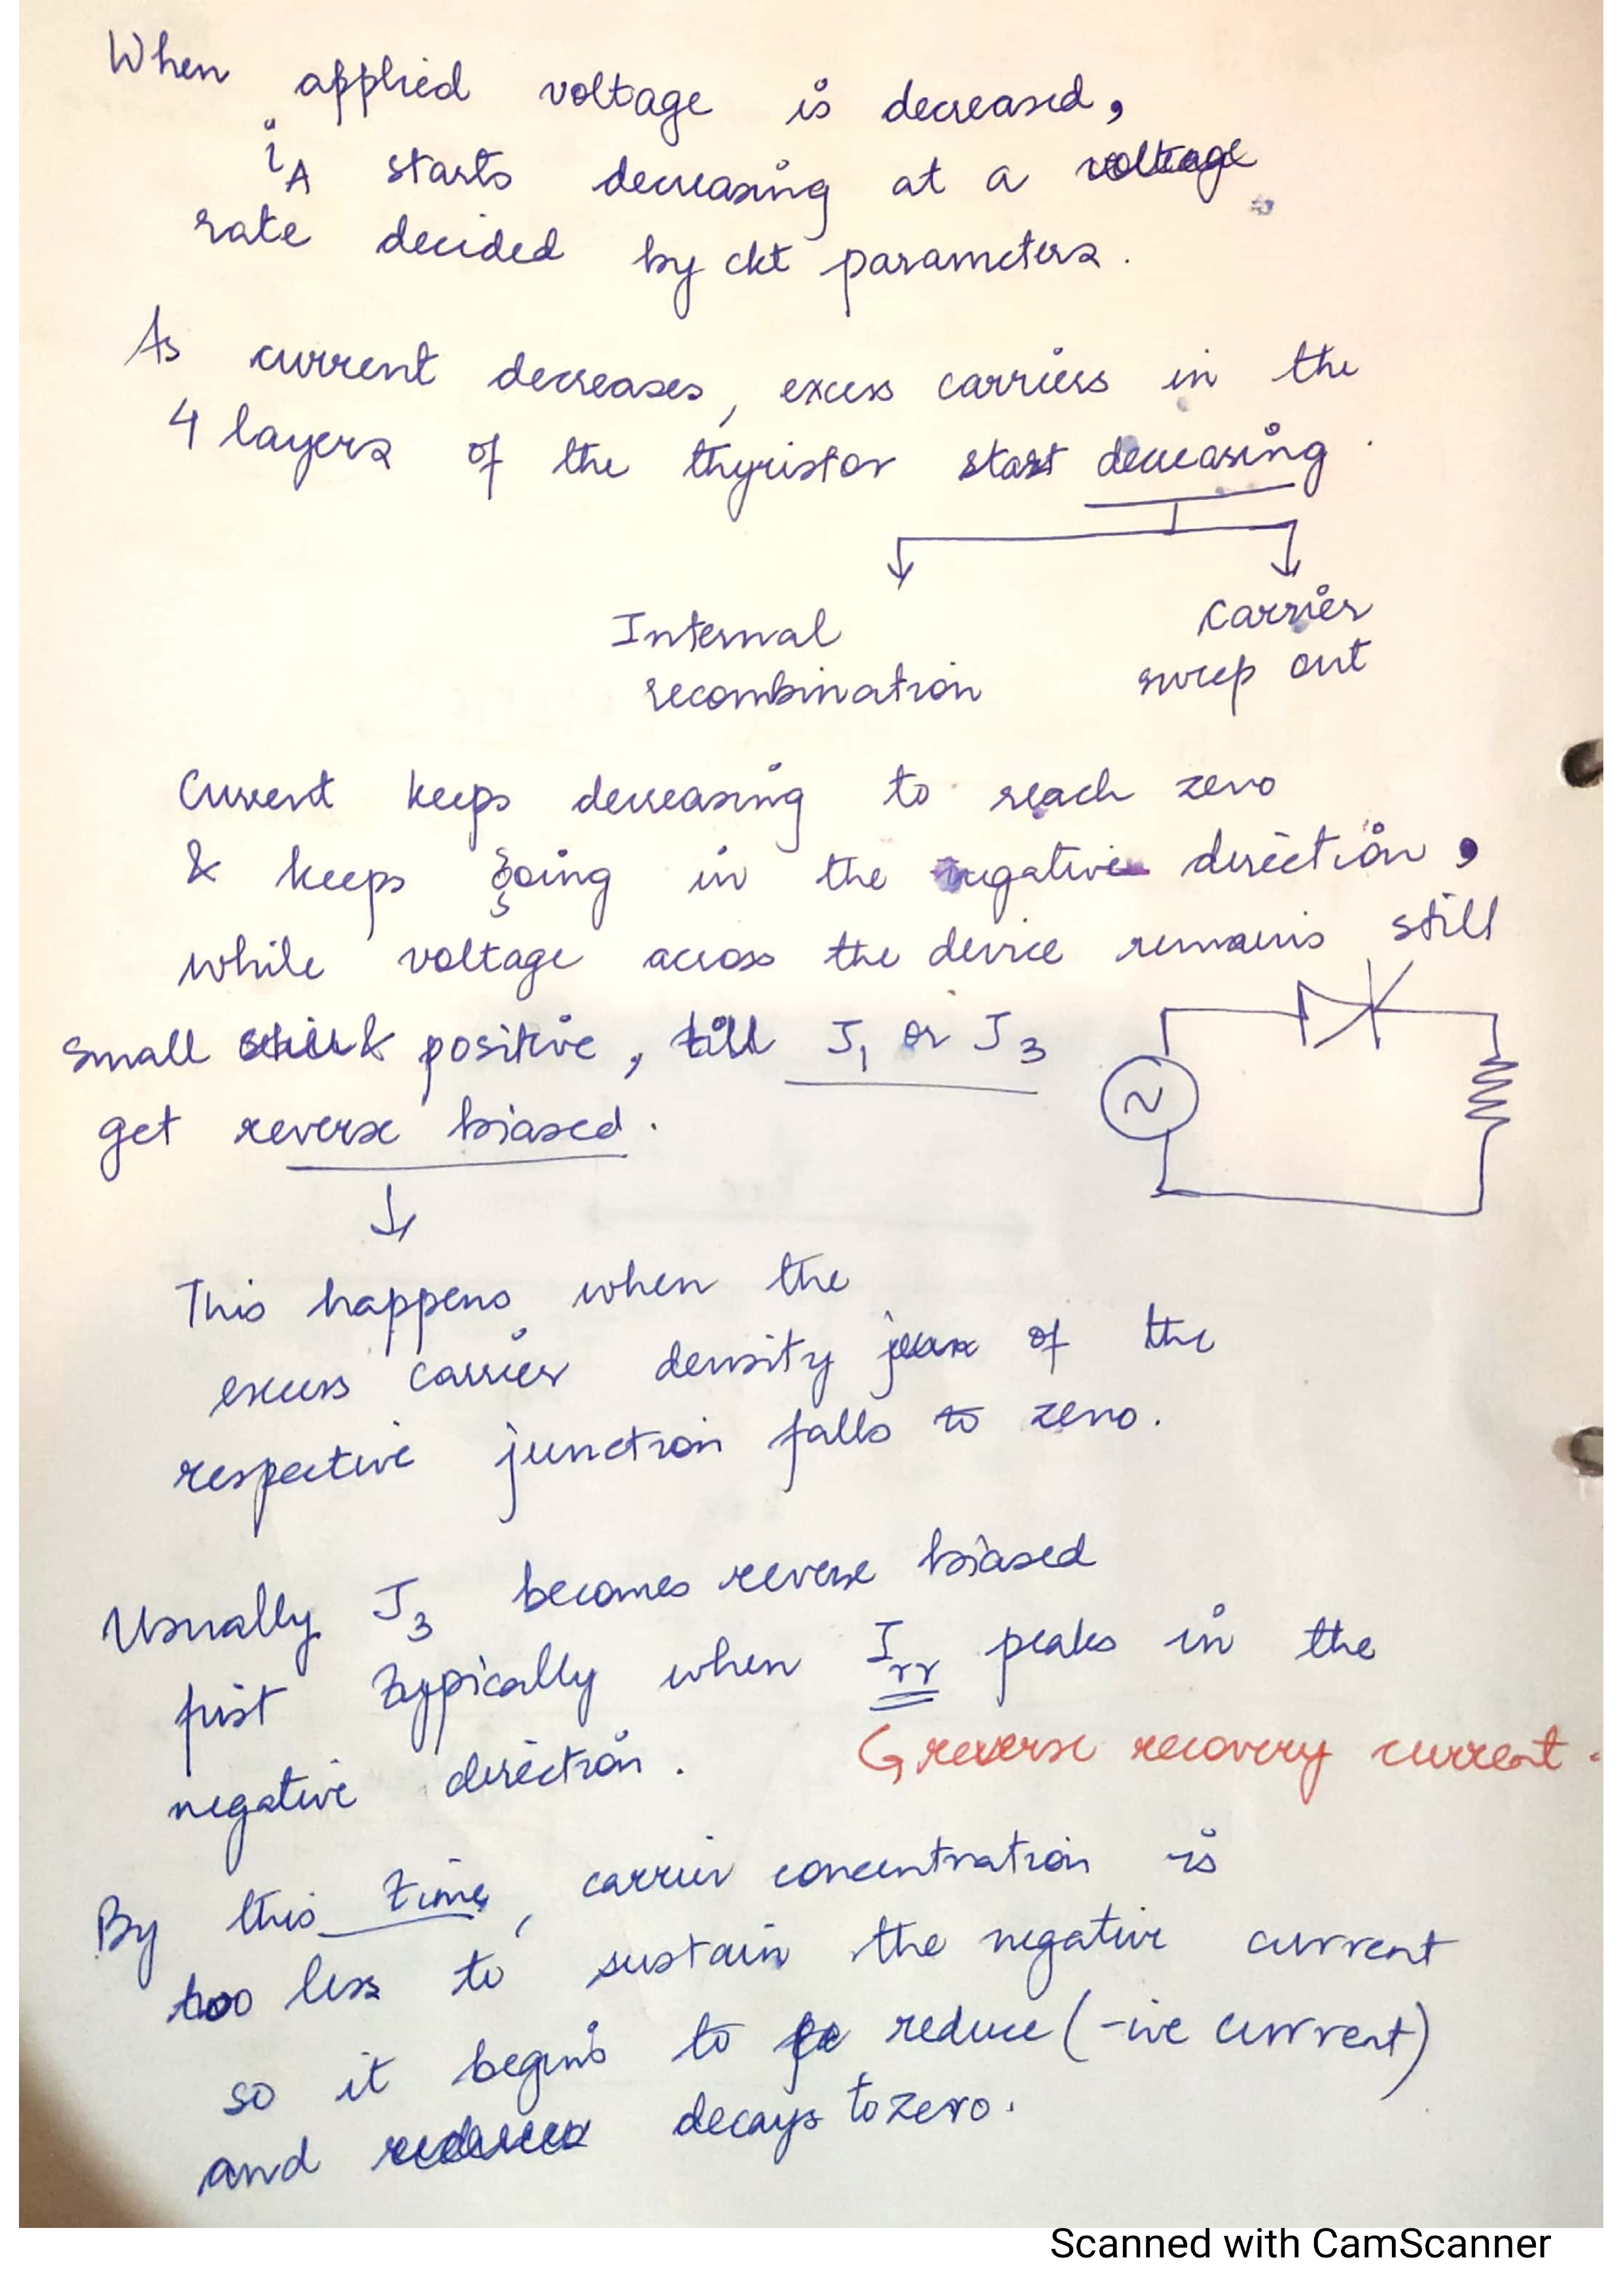 When applied voltage is decreased,
iA starts decreasing at a voltage
rate decided by ckt parameters.
As current decreases, excess carriers in the
4 layers of the thyristor start decreasing.
Internal
recombination
carrier
sweep out
Current keeps decreasing to reach zero
& keeps going in the negative direction,
while voltage across the device remains still
small positive, till J1 or J3
get reverse biased.
This happens when the
excess carrier density of the
respective junction falls to zero.
Usually J3 becomes reverse biased
first typically when Irr peaks in the
negative direction.
reverse recovery current.
By this time, carrier concentration is
too less to sustain the negative current
so it begins to reduce (-ive current)
and decays to zero.
Scanned with CamScanner